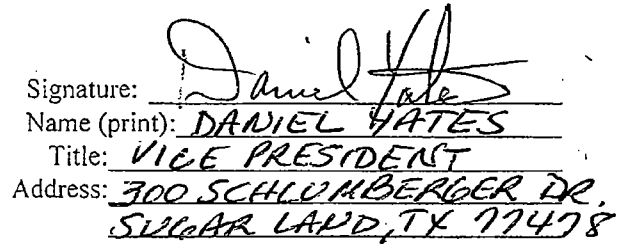 Signature: Daniel Yates
Name (print): DANIEL YATES
Title: VICE PRESIDENT
Address: 300 SCHLUMBERGER DR.
SUGAR LAND, TX 77478